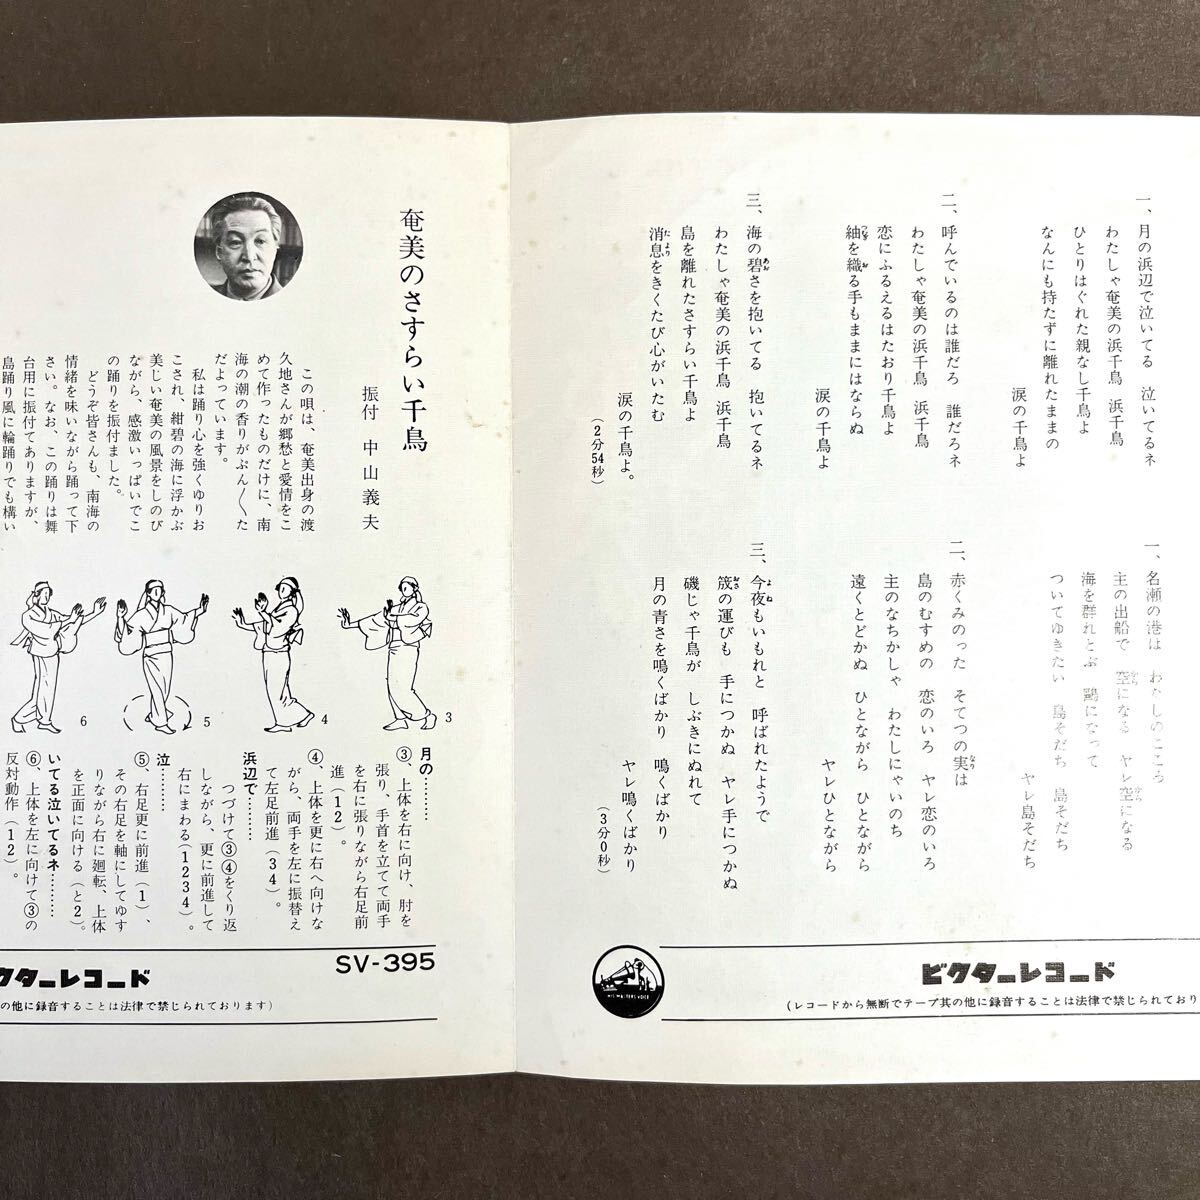 一、月の浜辺で泣いてる　泣いてるネ
わたしゃ奄美の浜千鳥　浜千鳥
ひとりはぐれた親なし千鳥よ
なんにも持たずに離れたままの
涙の千鳥よ
二、呼んでいるのは誰だろ　誰だろネ
わたしゃ奄美の浜千鳥　浜千鳥
恋にふるえるはたおり千鳥よ
紬を織る手もままにはならぬ
涙の千鳥よ
三、海の碧さを抱いてる　抱いてるネ
わたしゃ奄美の浜千鳥　浜千鳥
島を離れたさすらい千鳥よ
消息をきくたび心がいたむ
涙の千鳥よ。
(2分54秒)
一、名瀬の港は　わたしのこころ
主の出船で　空になる　ヤレ空になる
海を群れとぶ　鷗になって
ついてゆきたい　島そだち　島そだち
ヤレ島そだち
二、赤くみのった　そてつの実は
島のむすめの　恋のいろ　ヤレ恋のいろ
主のなちかしゃ　わたしにゃいのち
遠くとどかぬ　ひとながら　ひとながら
ヤレひとながら
三、今夜もいもれと　呼ばれたようで
筬の運びも　手につかぬ　ヤレ手につかぬ
磯じゃ千鳥が　しぶきにぬれて
月の青さを鳴くばかり　鳴くばかり
ヤレ鳴くばかり
(3分0秒)
HIS MASTERS VOICE
ビクターレコード
(レコードから無断でテープ其の他に録音することは法律で禁じられており
奄美のさすらい千鳥
振付　中山義夫
この唄は、奄美出身の渡
久地さんが郷愁と愛情をこ
めて作ったものだけに、南
海の潮の香りがぷん〳〵た
だよっています。
私は踊り心を強くゆりお
こされ、紺碧の海に浮かぶ
美しい奄美の風景をしのび
ながら、感激いっぱいでこ
の踊りを振付ました。
どうぞ皆さんも、南海の
情緒を味いながら踊って下
さい。なお、この踊りは舞
台用に振付てありますが、
島踊り風に輪踊りでも構い
3
4
5
6
月の………
③、上体を右に向け、肘を
張り、手首を立てて両手
を右に張りながら右足前
進(12)。
④、上体を更に右へ向けな
がら、両手を左に振替え
て左足前進(34)。
浜辺で………
つづけて③④をくり返
しながら、更に前進して
右にまわる(1234)。
泣………
⑤、右足更に前進(1)、
その右足を軸にしてゆす
りながら右に廻転、上体
を正面に向ける(と2)。
いてる泣いてるネ………
⑥、上体を左に向けて③の
反対動作(12)。
SV-395
クターレコード
の他に録音することは法律で禁じられております)